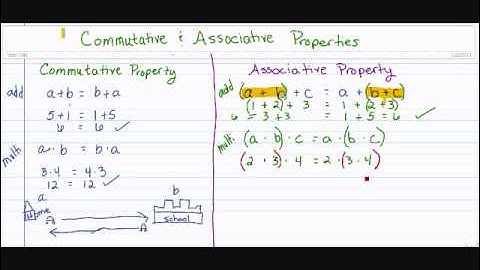 Commutative & Associative Properties
Commutative Property
add
a+b = b+a
5+1 = 1+5
6 = 6 ✓
mult:
a · b = b · a
3·4 = 4·3
12 = 12 ✓
a
Home
A
A
b
School
Associative Property
add
(a + b) + c = a + (b + c)
(1 + 2) + 3 = 1 + (2 + 3)
6 = 3 + 3 = 1 + 5 = 6 ✓
mult:
(a · b) · c = a · (b · c)
(2 · 3) · 4 = 2 · (3 · 4)